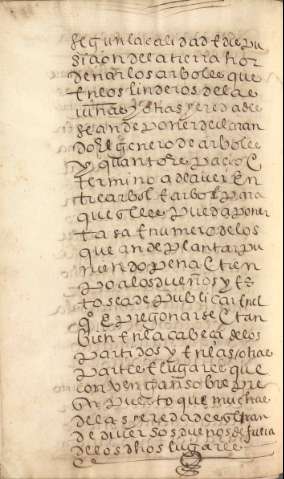 segun la calidad e dispu
sicion de la tierra hor
denar los arboles que
en los linderos de las
viñas y dhas heredades
se an de poner declaran
do el genero de arboles
y quanto espacio e
termino a de aver en
tre arbol e arbol para
que se les pueda poner
tasa e numero de los
que an de plantar pu
niendo pena e tien
po a los dueños y es
to se a de publicar en el
qº e pregonar e tan
bien en la cabeça de los
partidos y en las dhas
partes e lugares que
convengan sobre
puesto que muchas
de las heredades
de diversos dueños de fuera
de los dhos lugares